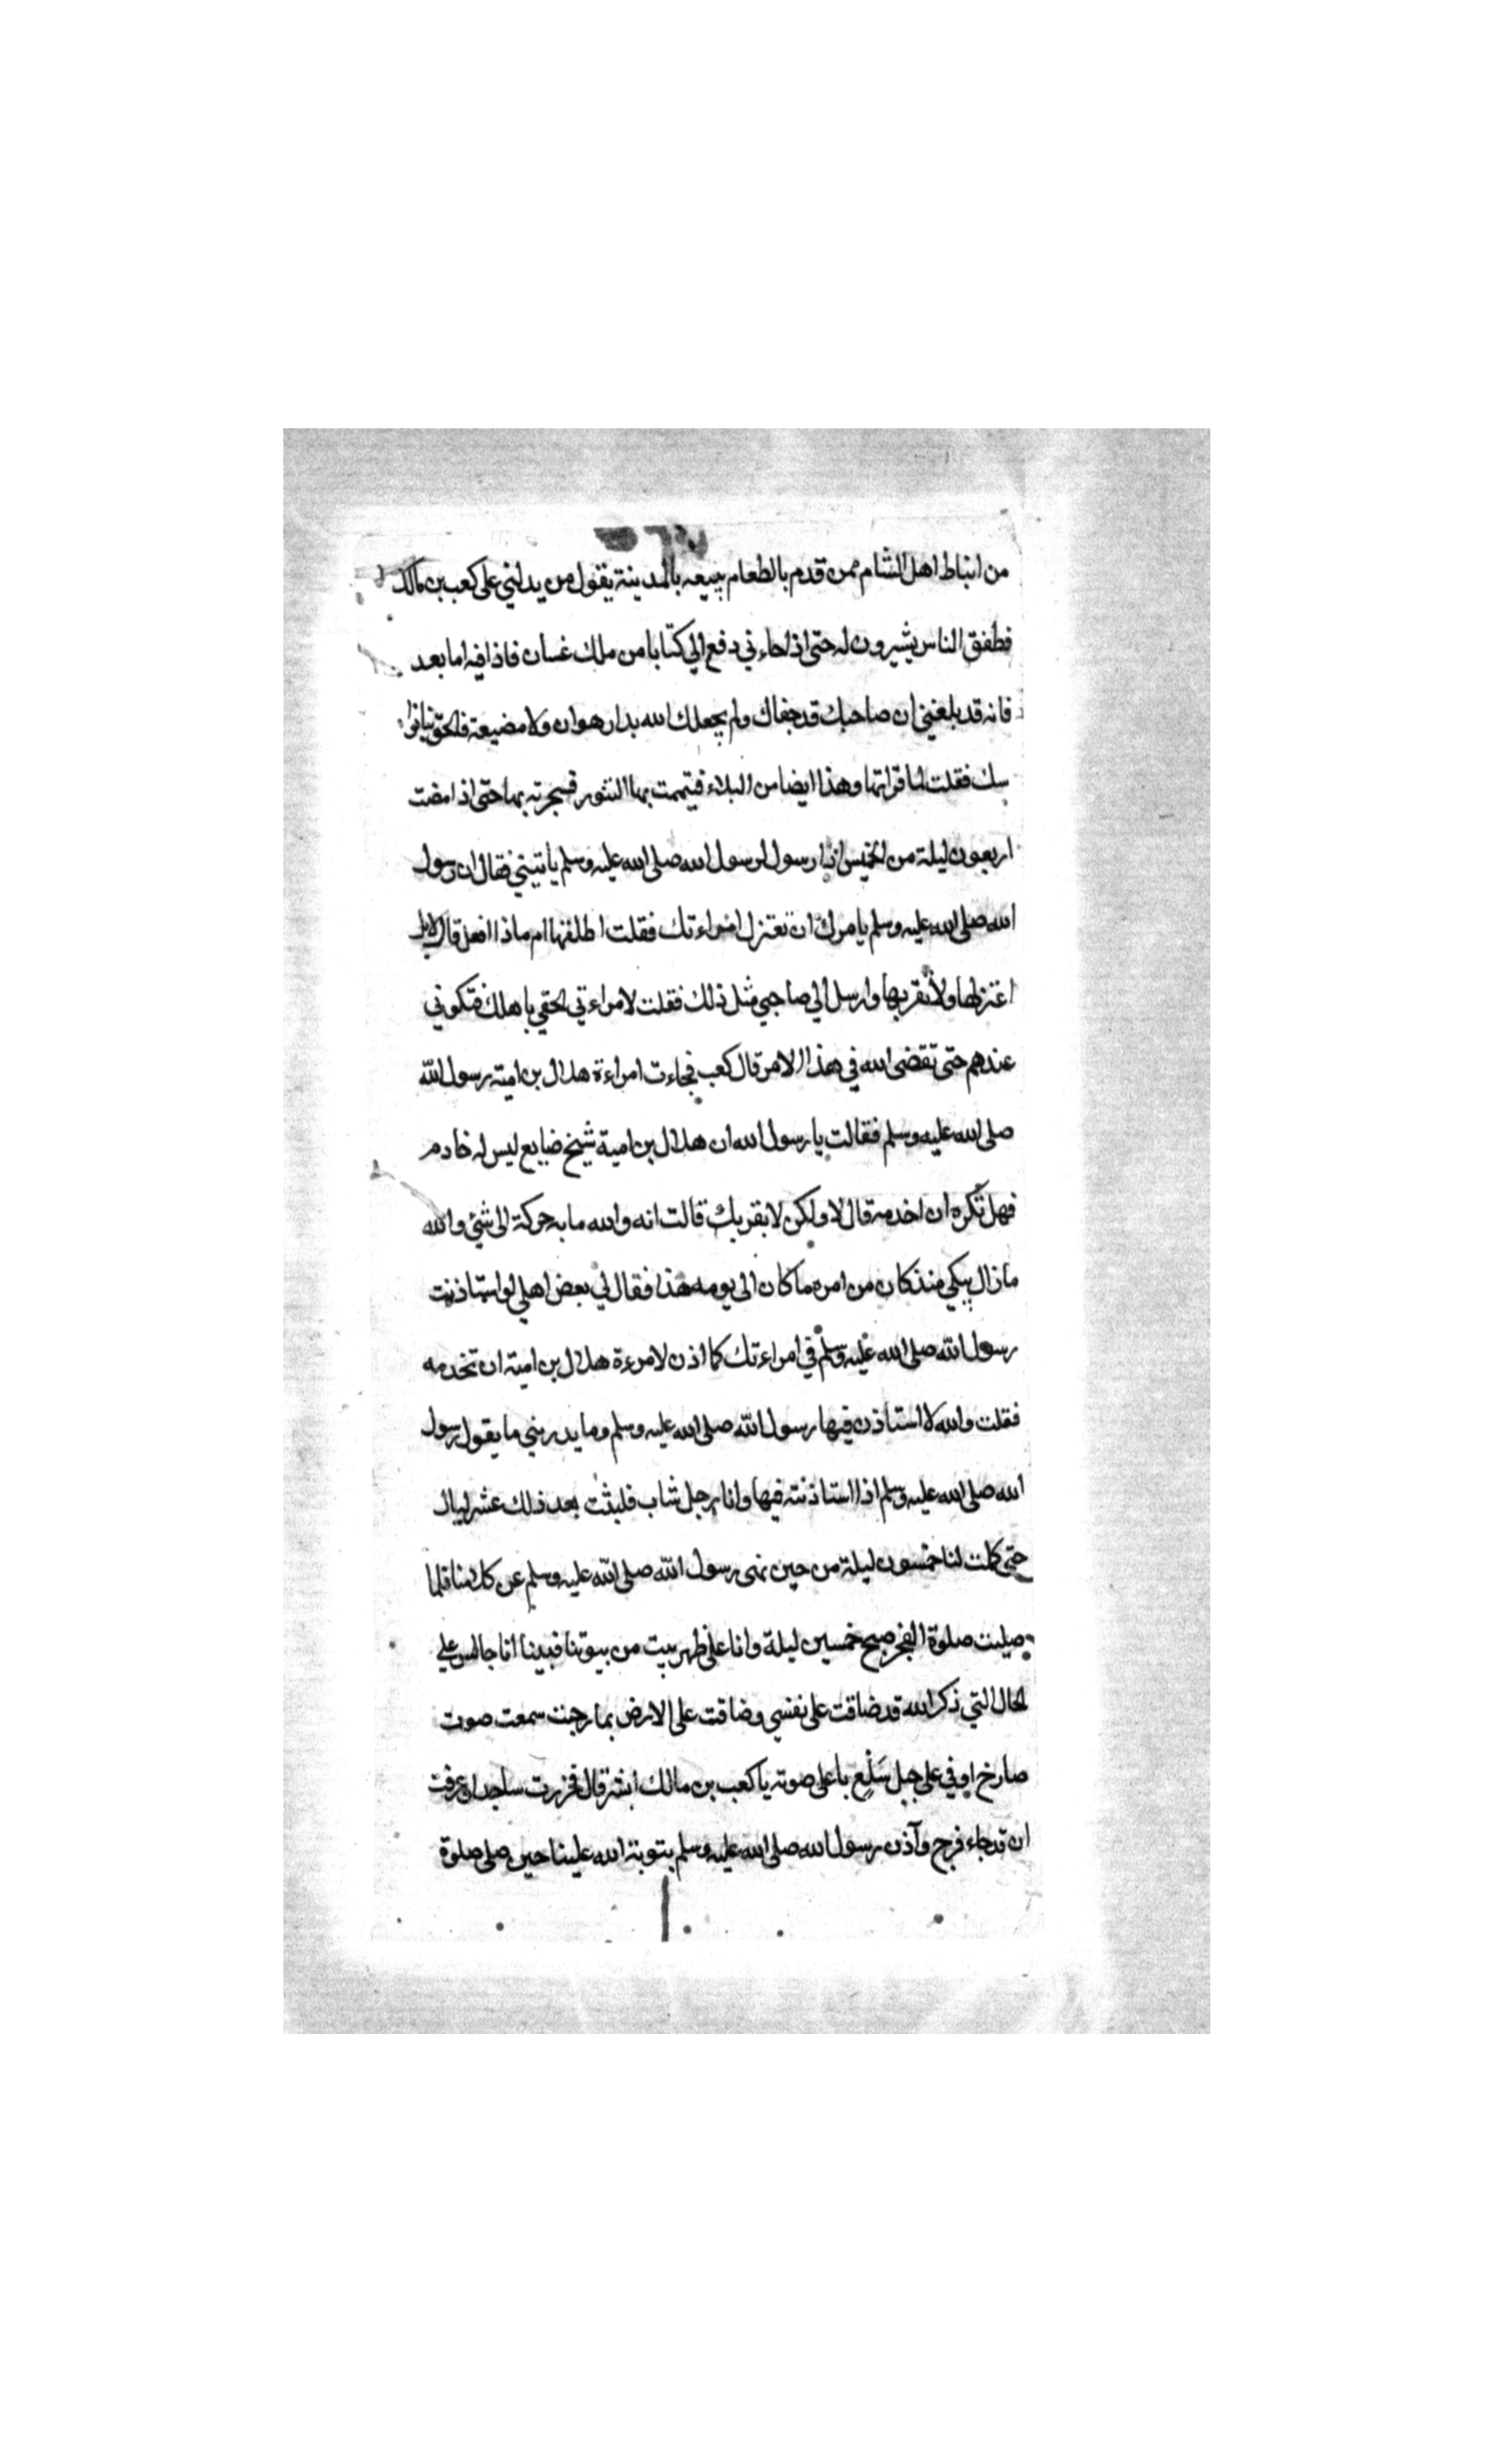 من انباط اهل الشام ممن قدم بالطعام يبيعه بالمدينة يقول من يدلني على كعب بن مالك
فطفق الناس يشيرون له حتى اذا جاءني دفع الي كتابا من ملك غسان فاذا فيه اما بعد
فانه قد بلغني ان صاحبك قد جفاك ولم يجعلك الله بدار هوان ولا مضيعة فالحق بنا نوا
سك فقلت لما قراتها وهذا ايضا من البلاء فتيممت بها التنور فسجرته بها حتى اذا مضت
اربعون ليلة من الخمسين اذا رسول لرسول الله صلى الله عليه وسلم ياتيني فقال ان رسول
الله صلى الله عليه وسلم يامرك ان تعتزل امراءتك فقلت اطلقها ام ماذا افعل قال لا بل
اعتزلها ولا تقربها وارسل الي صاحبي مثل ذلك فقلت لامراءتي الحقي باهلك فتكوني
عندهم حتى تقضى الله في هذا الامر قال كعب فجاءت امراءة هلال بن امية رسول الله
صلى الله عليه وسلم فقالت يا رسول الله ان هلال بن امية شيخ ضايع ليس له خادم
فهل تكره ان اخدمه قال لا ولكن لا يقربك قالت انه والله ما به حركة الى شئ والله
ما زال يبكي منذ كان من امره ما كان الى يومه هذا فقال لي بعض اهلي لو استاذنت
رسول الله صلى الله عليه وسلم في امراءتك كما اذن لامرءة هلال بن امية ان تخدمه
فقلت والله لا استاذن فيها رسول الله صلى الله عليه وسلم وما يدريني ما يقول رسول
الله صلى الله عليه وسلم اذا استاذنته فيها وانا رجل شاب فلبثت بعد ذلك عشر ليال
حتى كملت لنا خمسون ليلة من حين نهى رسول الله صلى الله عليه وسلم عن كلامنا فلما
صليت صلوة الفجر صبح خمسين ليلة وانا على ظهر بيت من بيوتنا فبينا انا جالس علي
لحال التي ذكر الله قد ضاقت على نفسي وضاقت على الارض بما رحبت سمعت صوت
صارخ اوفي على جبل سَلْعٍ باعلى صوته يا كعب بن مالك ابشر قال فخررت ساجدا وعرفت
ان قد جاء فرج وآذن رسول الله صلى الله عليه وسلم بتوبة الله علينا حين صلى صلوة